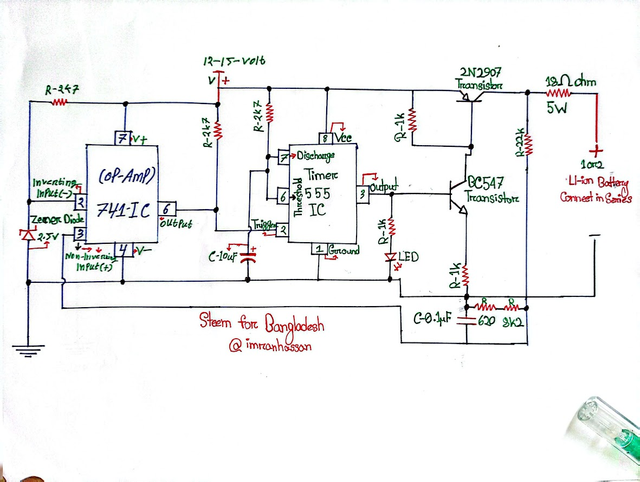 12-15-volt
V +
R-2k7
R-2k7
R-2k7
2N2907
Transistor
18Ω ohm
5W
R-1k
R-22k
7 V+
(OP-AMP)
741-IC
Inverting
Input(-)
2
Zener Diode
2.5V
3
Non-Inverting
Input(+)
4 V-
6
Output
8 Vcc
7 Discharge
Threshold
6
Timer
555
IC
Trigger
2
3 Output
1 Ground
C-10uF
+
R-1k
LED
BC547
Transistor
R-1k
+
1 or 2
Li-ion Battery
Connect in Series
-
C-0.1µF
R R
620 8k2
Steem for Bangladesh
@imranhassan